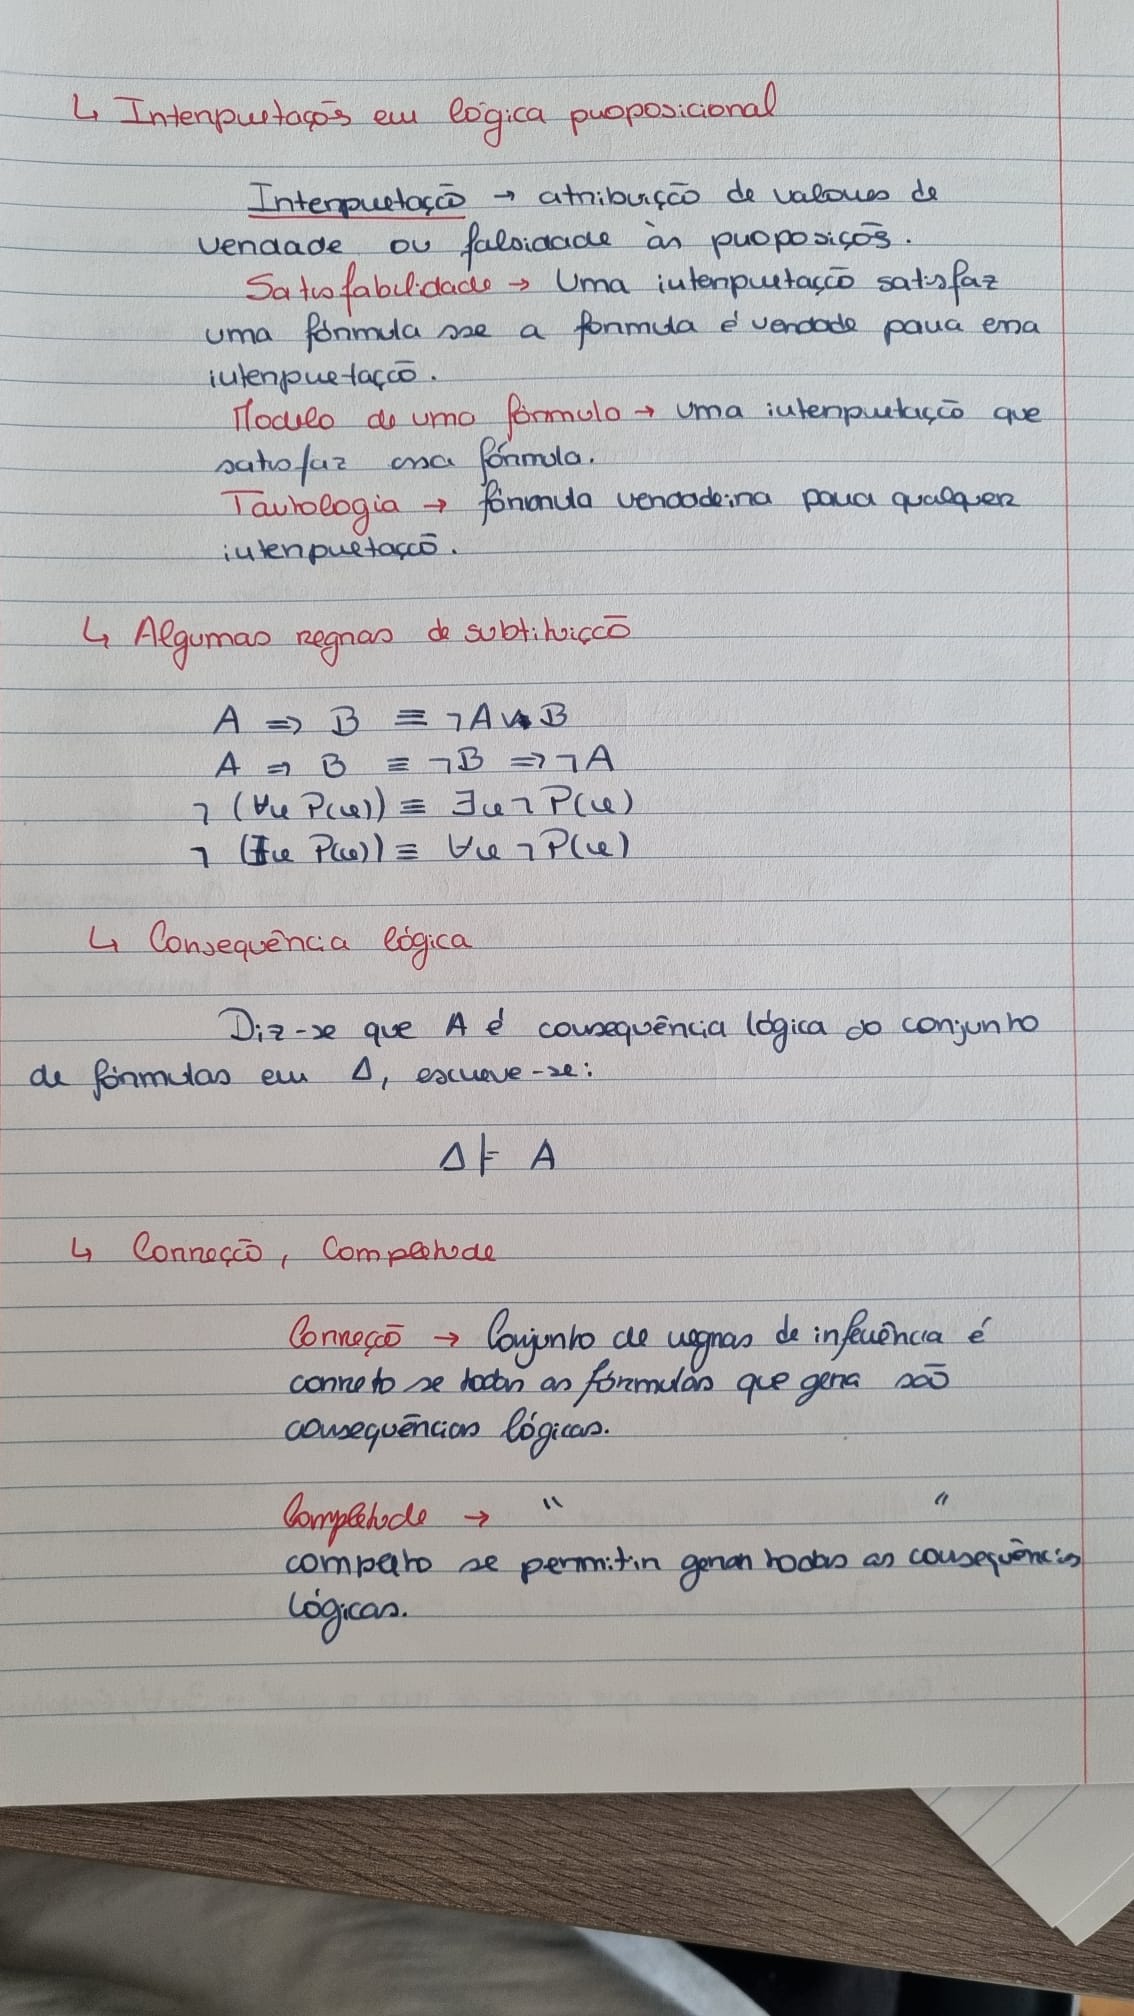 ↳ Interpretações em lógica proposicional
Interpretação → atribuição de valores de
verdade ou falsidade às proposições.
Satisfabilidade → Uma interpretação satisfaz
uma fórmula sse a fórmula é verdade para essa
interpretação.
Modelo de uma fórmula → uma interpretação que
satisfaz essa fórmula.
Tautologia → fórmula verdadeira para qualquer
interpretação.
↳ Algumas regras de subtituição
A ⇒ B ≡ ¬A ∨ B
A ⇒ B ≡ ¬B ⇒ ¬A
¬ (∀x P(x)) ≡ ∃x ¬P(x)
¬ (∃x P(x)) ≡ ∀x ¬P(x)
↳ Consequência lógica
Diz-se que A é consequência lógica do conjunto
de fórmulas em Δ, escreve-se:
Δ ⊧ A
↳ Correção, Completude
Correção → Conjunto de regras de inferência é
correto se todas as fórmulas que gera são
consequências lógicas.
Completude → " "
completo se permitir gerar todas as consequências
lógicas.